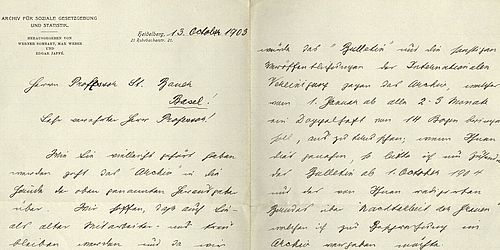 ARCHIV FÜR SOZIALE GESETZGEBUNG
UND STATISTIK.
HERAUSGEGEBEN VON
WERNER SOMBART, MAX WEBER
UND
EDGAR JAFFÉ.
Heidelberg, 13. October 1903
21 Rohrbacherstr. 21.
Herrn Professor St. Bauer
Basel!
Sehr verehrter Herr Professor!
Wie Sie vielleicht gehört haben
werden geht das Archiv in die
Hände der oben genannten Herausgeber
über. Wir hoffen, daß auch Sie
als alter Mitarbeiter uns treu
bleiben werden und da wir
würde das "Bulletin" und die sonstigen
Veröffentlichungen der Internationalen
Vereinigung gegen das Archiv, welches
vom 1. Januar ab alle 2-3 Monate
ein Doppelheft von 14 Bogen bringen
soll, auszutauschen; wenn Ihnen
dies genehm, so bitte ich um Zusendung
der Bulletin ab 1. October 1904
und der von Ihnen
Bandes über "Nachtarbeit der Frauen"
welchen ich zur Besprechung im
Archiv